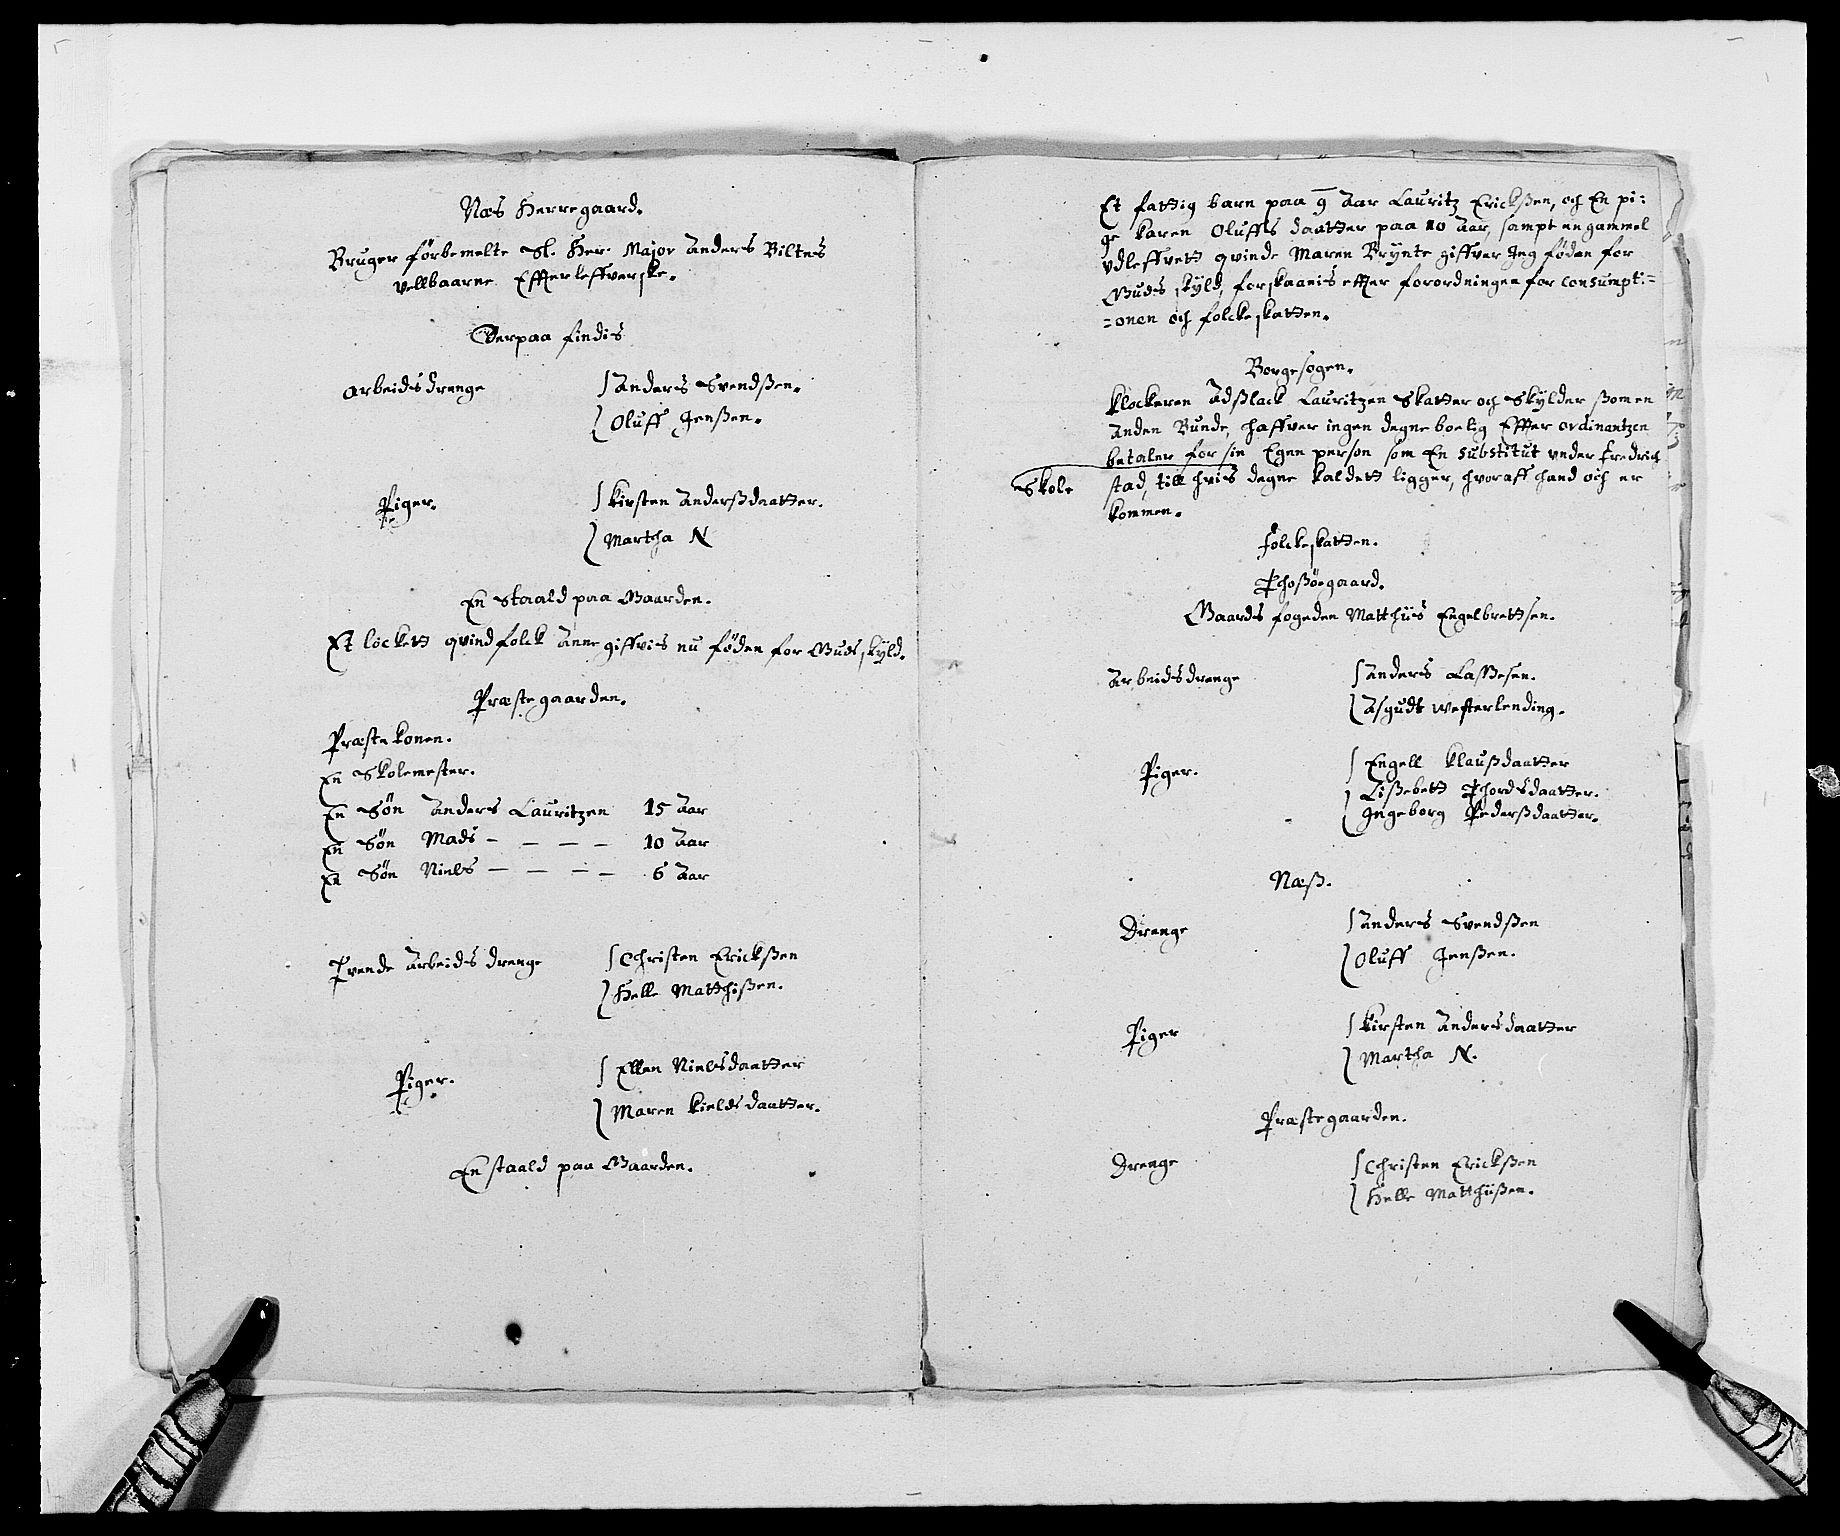 Næs Herregaard.
Bruger förbemelte Sl. Her. Major Anders Biltes
vellbaarne Effterleffverske.
Derpaa findis
Arbeidsdrenge Anders Svendßen.
Oluff Jenßen.
Piger. Kirsten Anderßdaatter.
Martha N
En Staald paa Gaarden.
Et lockett qvindfolck Anne giffvis nu föden for Guds skyld.
Præstegaarden.
Præstekonen.
En Skolemester.
En Sön Anders Lauritzen 15 Aar
En Sön Mads – – – – 10 Aar
En Sön Niels – – – – 6 Aar
Tvende Arbeids drenge Christen Erickßen
Helle Matthißen.
Piger. Ellen Nielsdaatter
Maren Kieldsdaatter.
En staald paa Gaarden.
Et fattig barn paa 9 Aar Lauritz Erickßen, och En pi:
ge Karen Oluffs daatter paa 10 Aar, sampt en gammel
udleffvett qvinde Maren Brynte giffver Jeg föden for
Guds skyld, forskaanis effter forordningen for Consumpti=
=onen och folckeskatten.
Borgesogen.
Klockeren Adßlack Lauritzen Skatter och Skylder ßom en
Anden Bunde, haffver ingen degneboelig Effter ordinantzen
betaler for sin Egen person som En substitut under Fredrich
Skole
stad, till hvis degne kaldett ligger, hvoraff hand och er
kommen.
Folckeskatten.
Thosöegaard.
Gaards fogeden Matthiis Engelbrettsen.
Arbeidsdrenge Anders Laßesen.
Asgudt Westerlending.
Piger. Engell Klaußdaatter
Lißebett Thordsdaatter.
Ingeborg Pederßdaatter.
Næß.
Drenge Anders Svendßen
Oluff Jenßen.
Piger Kirsten Andersdaatter
Martha N.
Præstegaarden.
Drenge Christen Erickßen
Helle Matthiißen.